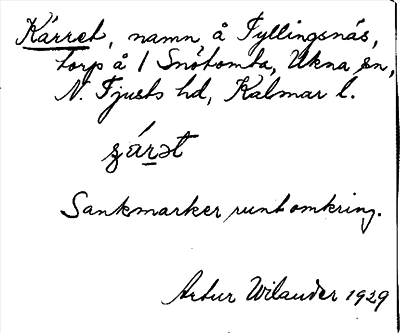 Kärret, namn å Fyllingsnäs,
torp å 1 Snötomta, Ukna sn,
N. Tjusts hd, Kalmar l.
Sankmarker runt omkring.
Artur Wilander 1929